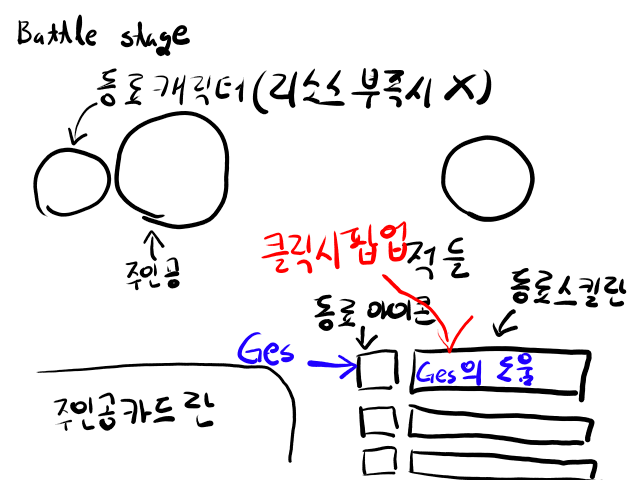 Battle stage
동료캐릭터(리소스 부족시 X)
주인공
클릭시 팝업
적들
동료 아이콘
동료스킬란
Ges
Ges의 도움
주인공카드란